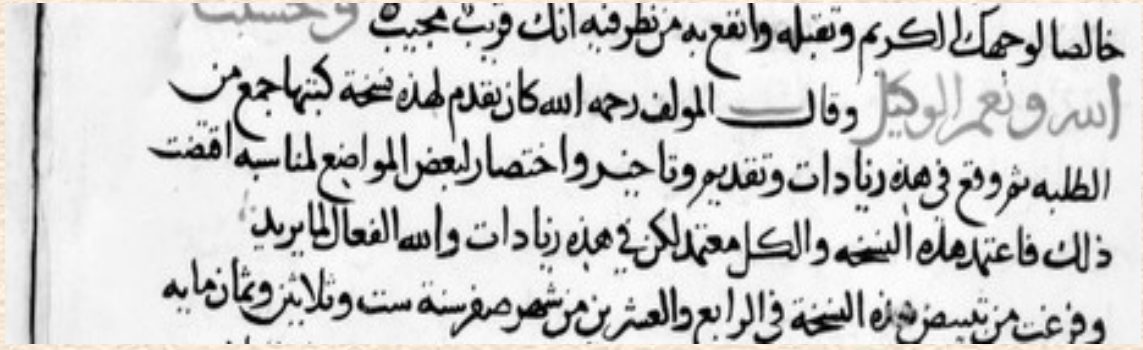 خالصا لوجهك الكريم وتقبله وانفع به من نظر فيه انك قريب مجيب وحسبنا
الله ونعم الوكيل وقال المولف رحمه الله كان تقدم لهذه نسخة كتبها جمع من
الطلبه ثم وقع في هذه زيادات وتقديم وتاخير واختصار لبعض المواضع لمناسبه اقتضت
ذلك فاعتمد هذه النسخه والكل معتمد لكن في هذه زيادات والله الفعال لما يريد
وفرغت من تبييض هذه النسخة في الرابع والعشرين من شهر صفر سنة ست وثلاثين وثمان مايه